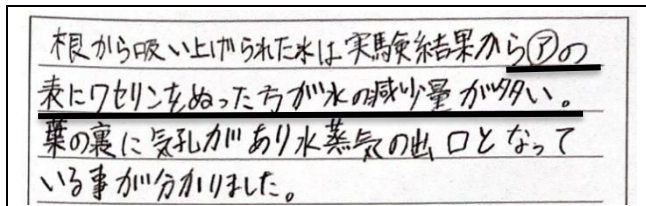 根から吸い上げられた水は実験結果から㋐の
表にワセリンをぬった方が水の減少量が多い。
葉の裏に気孔があり水蒸気の出口となって
いる事が分かりました。